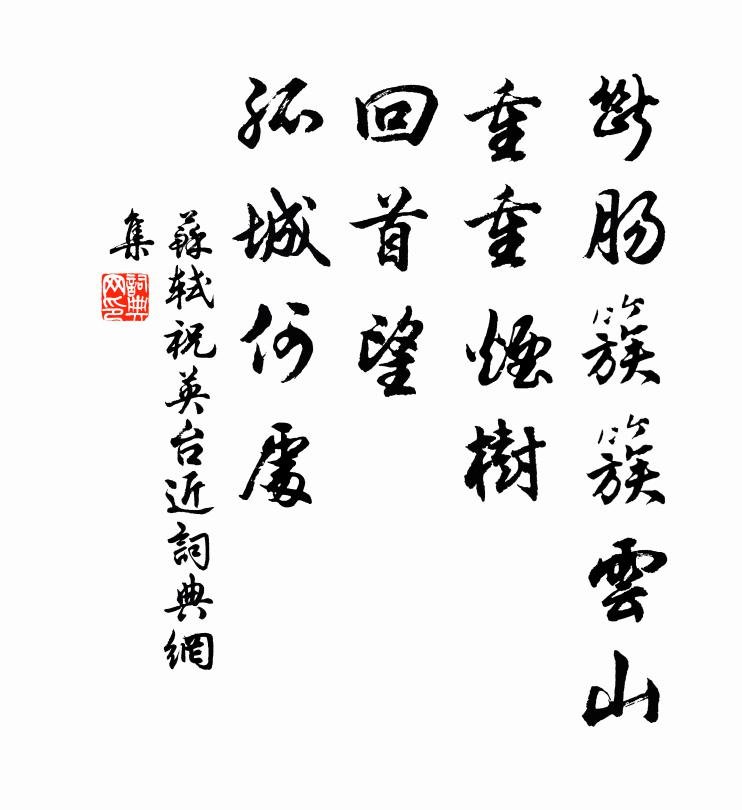 斷腸簇簇雲山
重重煙樹
回首望
孤城何處
蘇軾祝英台近詞典網
集
詞典網印